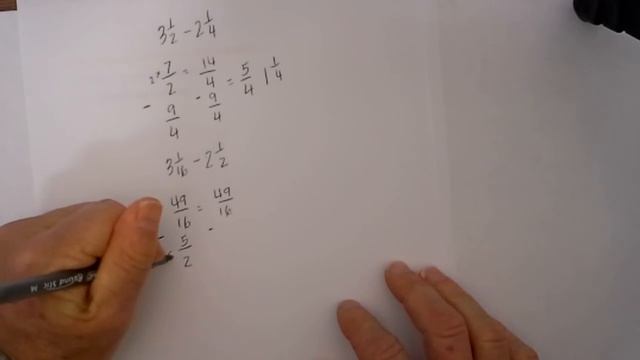 3 1/2 - 2 1/4
2x 7/2 = 14/4
- 9/4 - 9/4 = 5/4 1 1/4
3 1/16 - 2 1/2
49/16 = 49/16
- 5/2 -
Round Stic M